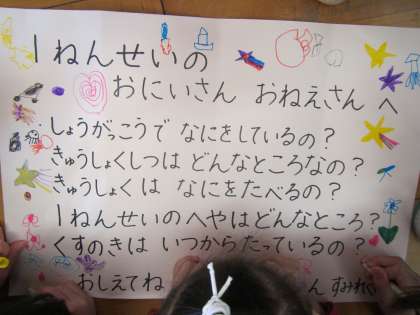 1ねんせいの
おにいさん おねえさん へ
しょうがっこうで なにをしているの?
きゅうしょくしつは どんなところなの?
きゅうしょくは なにをたべるの?
1ねんせいのへやはどんなところ?
くすのきは いつからたっているの?
おしえてね
ん すみれぐ